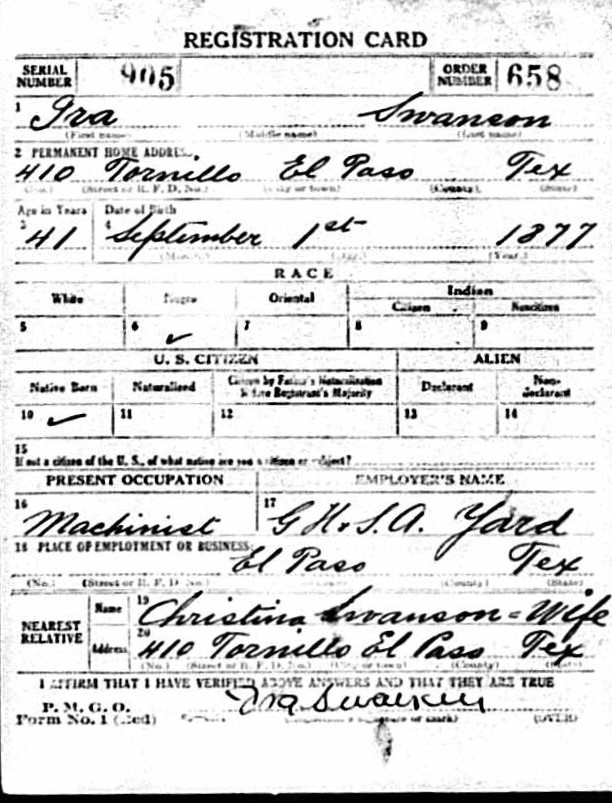 REGISTRATION CARD
SERIAL NUMBER 905 ORDER NUMBER 658
1 Ira Swanson
(First name) (Middle name) (Last name)
2 PERMANENT HOME ADDRESS:
410 Tornillo El Paso Tex
(No.) (Street or R. F. D. No.) (City or town) (County) (State)
Age in Years Date of Birth
3 41 4 September 1st 1877
(Month.) (Day.) (Year.)
RACE
White Negro Oriental Indian
Citizen Noncitizen
5 6 ✓ 7 8 9
U. S. CITIZEN ALIEN
Native Born Naturalized Citizen by Father's Naturalization Before Registrant's Majority Declarant Non-declarant
10 ✓ 11 12 13 14
15
If not a citizen of the U. S., of what nation are you a citizen or subject?
PRESENT OCCUPATION EMPLOYER'S NAME
16 Machinist 17 G H & S. A. Yard
18 PLACE OF EMPLOYMENT OR BUSINESS:
El Paso Tex
(No.) (Street or R. F. D. No.) (County) (State)
NEAREST RELATIVE Name 19 Christina Swanson = Wife
Address 20 410 Tornillo El Paso Tex
(No.) (Street or R. F. D. No.) (City or town) (County) (State)
I AFFIRM THAT I HAVE VERIFIED ABOVE ANSWERS AND THAT THEY ARE TRUE
P. M. G. O.
Form No. 1 (Red) Ira (OVER)